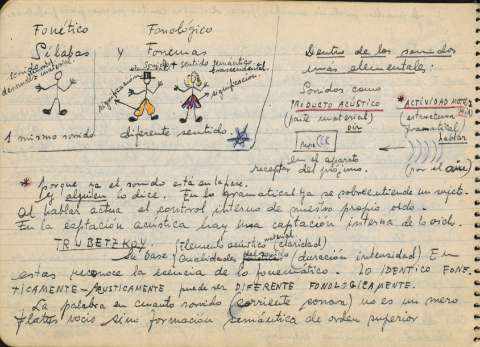 Fonético Fonológico
Sílabas y Fonemas
sonido desnudo material
sonido + sentido semántico trascendental.
significación
significación.
1 mismo sonido diferente sentido.
Dentro de los sonidos
más elementales:
Sonidos como
PRODUCTO ACÚSTICO
(parte material)
oir
en el aparato
receptor del prójimo.
* ACTIVIDAD
(estructura
gramatical)
hablar
(por el aire)
* Porque ya el sonido está en la
alguien lo dice. En lo gramatical ya se sobreentiende un sujeto.
Al hablar actua el control interno de nuestro propio oido.
En la captación acustica hay una captación interna de lo oido.
TRUBETZKOY. (Elemento acústico (claridad)
su base (Cualidades del sonido (duración intensidad) En
estas reconoce la esencia de lo fonemático. LO IDENTICO FONE
TICAMENTE-ACUSTICAMENTE puede ser DIFERENTE FONOLÓGICAMENTE.
La palabra en cuanto sonido (corriente sonora) no es un mero
flatus vocis sino formación semántica de orden superior